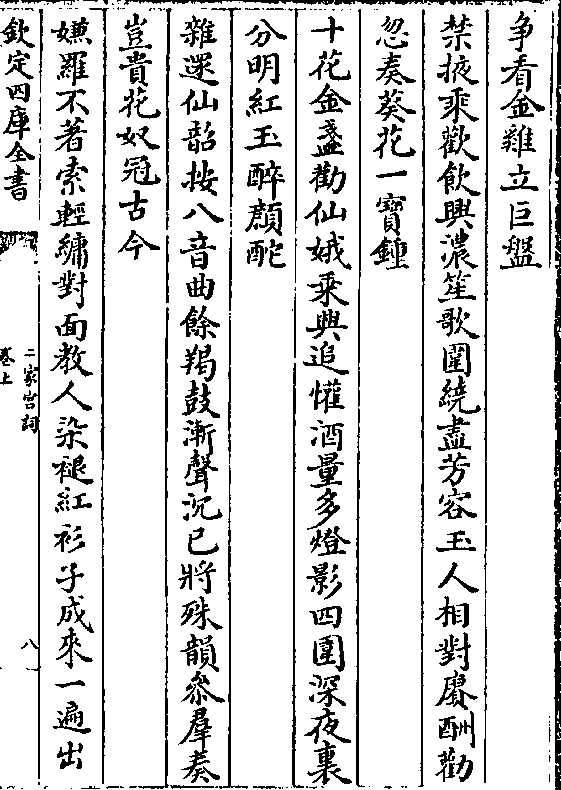 争看金雞立巨盤
禁掖乘歡飲興濃笙歌圍繞盡芳容玉人相對賡酬勸
忽奏葵花一寶鍾
十花金盞勸仙娥乘興追懽酒量多燈影四圍深夜裏
分明紅玉醉顔酡
雜遝仙韶按八音曲餘羯鼓漸聲沉已將殊韻叅羣奏
豈貴花奴冠古今
嫌羅不著索輕繡對面教人染褪紅衫子成來一遍出
欽定四庫全書
二家宫詞
卷上
八